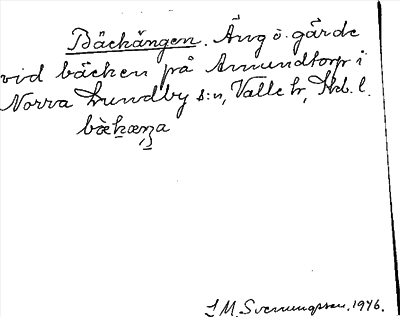 Bäckängen. Äng o. gärde
vid bäcken på Amundtorp i
Norra Lundby s:n, Valle hr, Skb. l.
bäkæŋa
J M. Svenungsson, 1946.